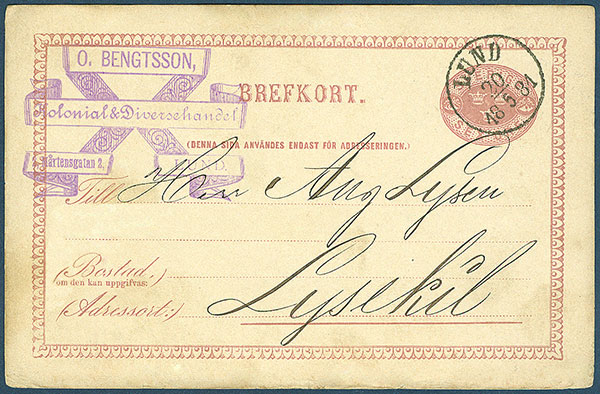 O. BENGTSSON,
Colonial & Diversehandel
Mårtensgatan 2,
LUND.
BREFKORT.
LUND
20
5
18 81
(DENNA SIDA ANVÄNDES ENDAST FÖR ADRESSERINGEN.)
Till Herr Aug Lysen
(Bostad,)
om den kan uppgifvas:
(Adressort:) Lysekil